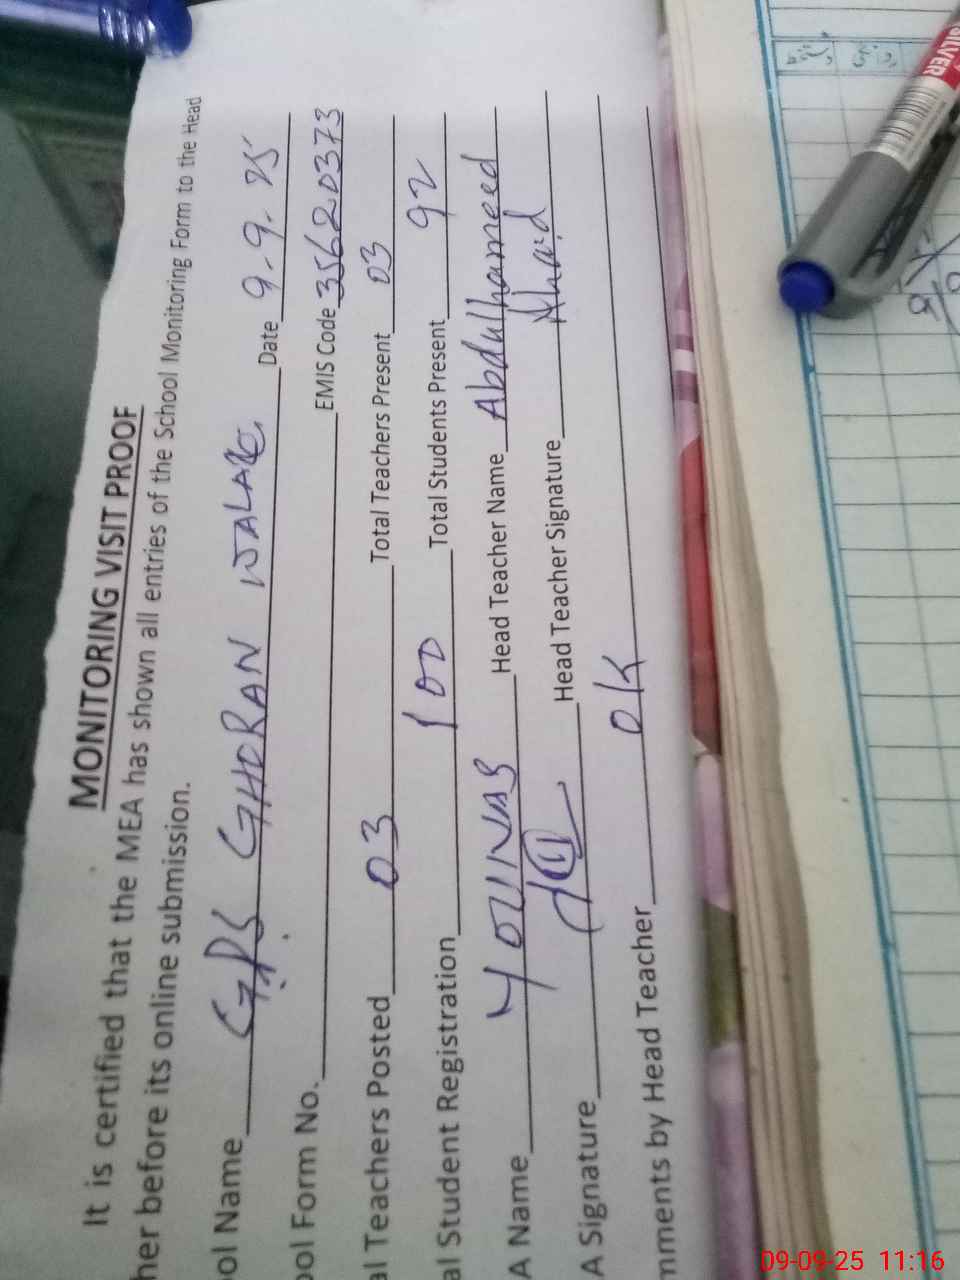 MONITORING VISIT PROOF
It is certified that the MEA has shown all entries of the School Monitoring Form to the Head
her before its online submission.
ool Name GPS GHORAN WALA Date 9.9.25
ool Form No. EMIS Code 35620373
al Teachers Posted 03 Total Teachers Present 03
al Student Registration 100 Total Students Present 92
A Name YOUNAS Head Teacher Name Abdulhameed
A Signature Head Teacher Signature
mments by Head Teacher OK
SILVER
09-09-25 11:16